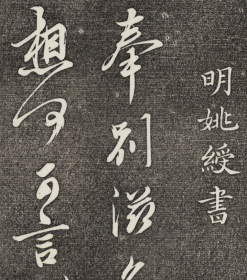 明姚綬書
奉别滋久
想可言